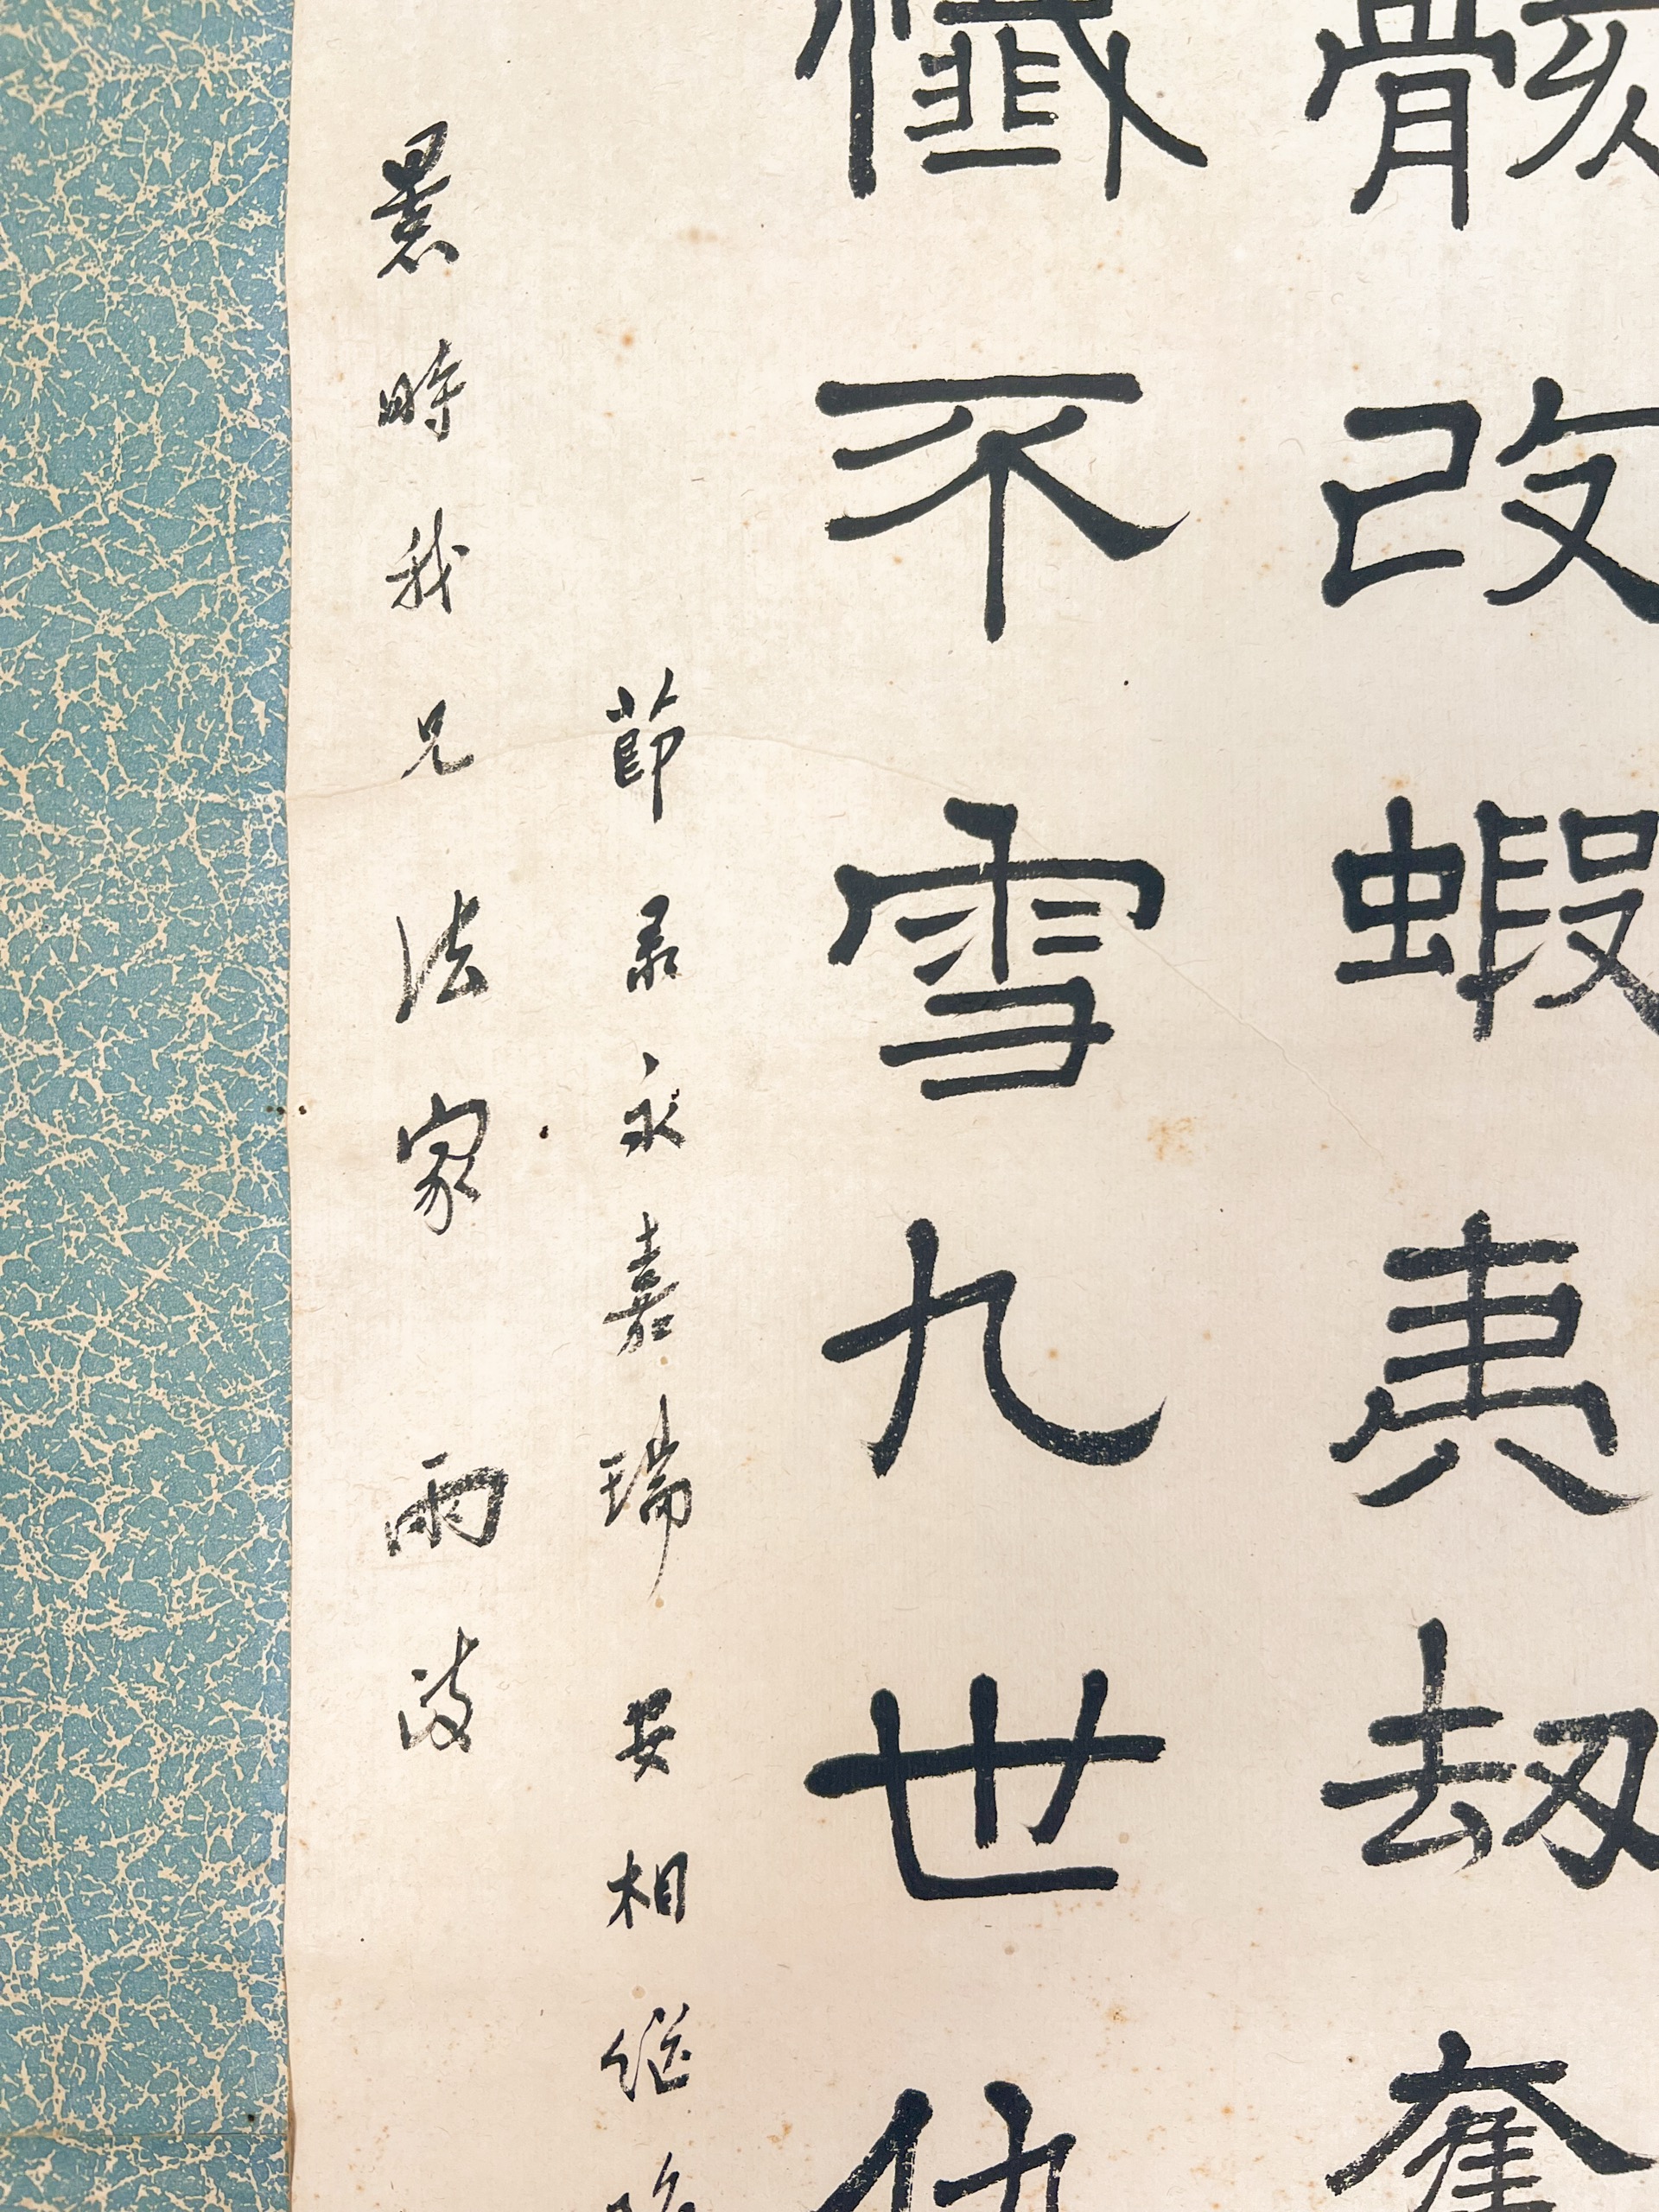 骸改蝦夷劫奪
懺不雪九世仇
節录永嘉瑞安相继臨
景時我兄法家雨政